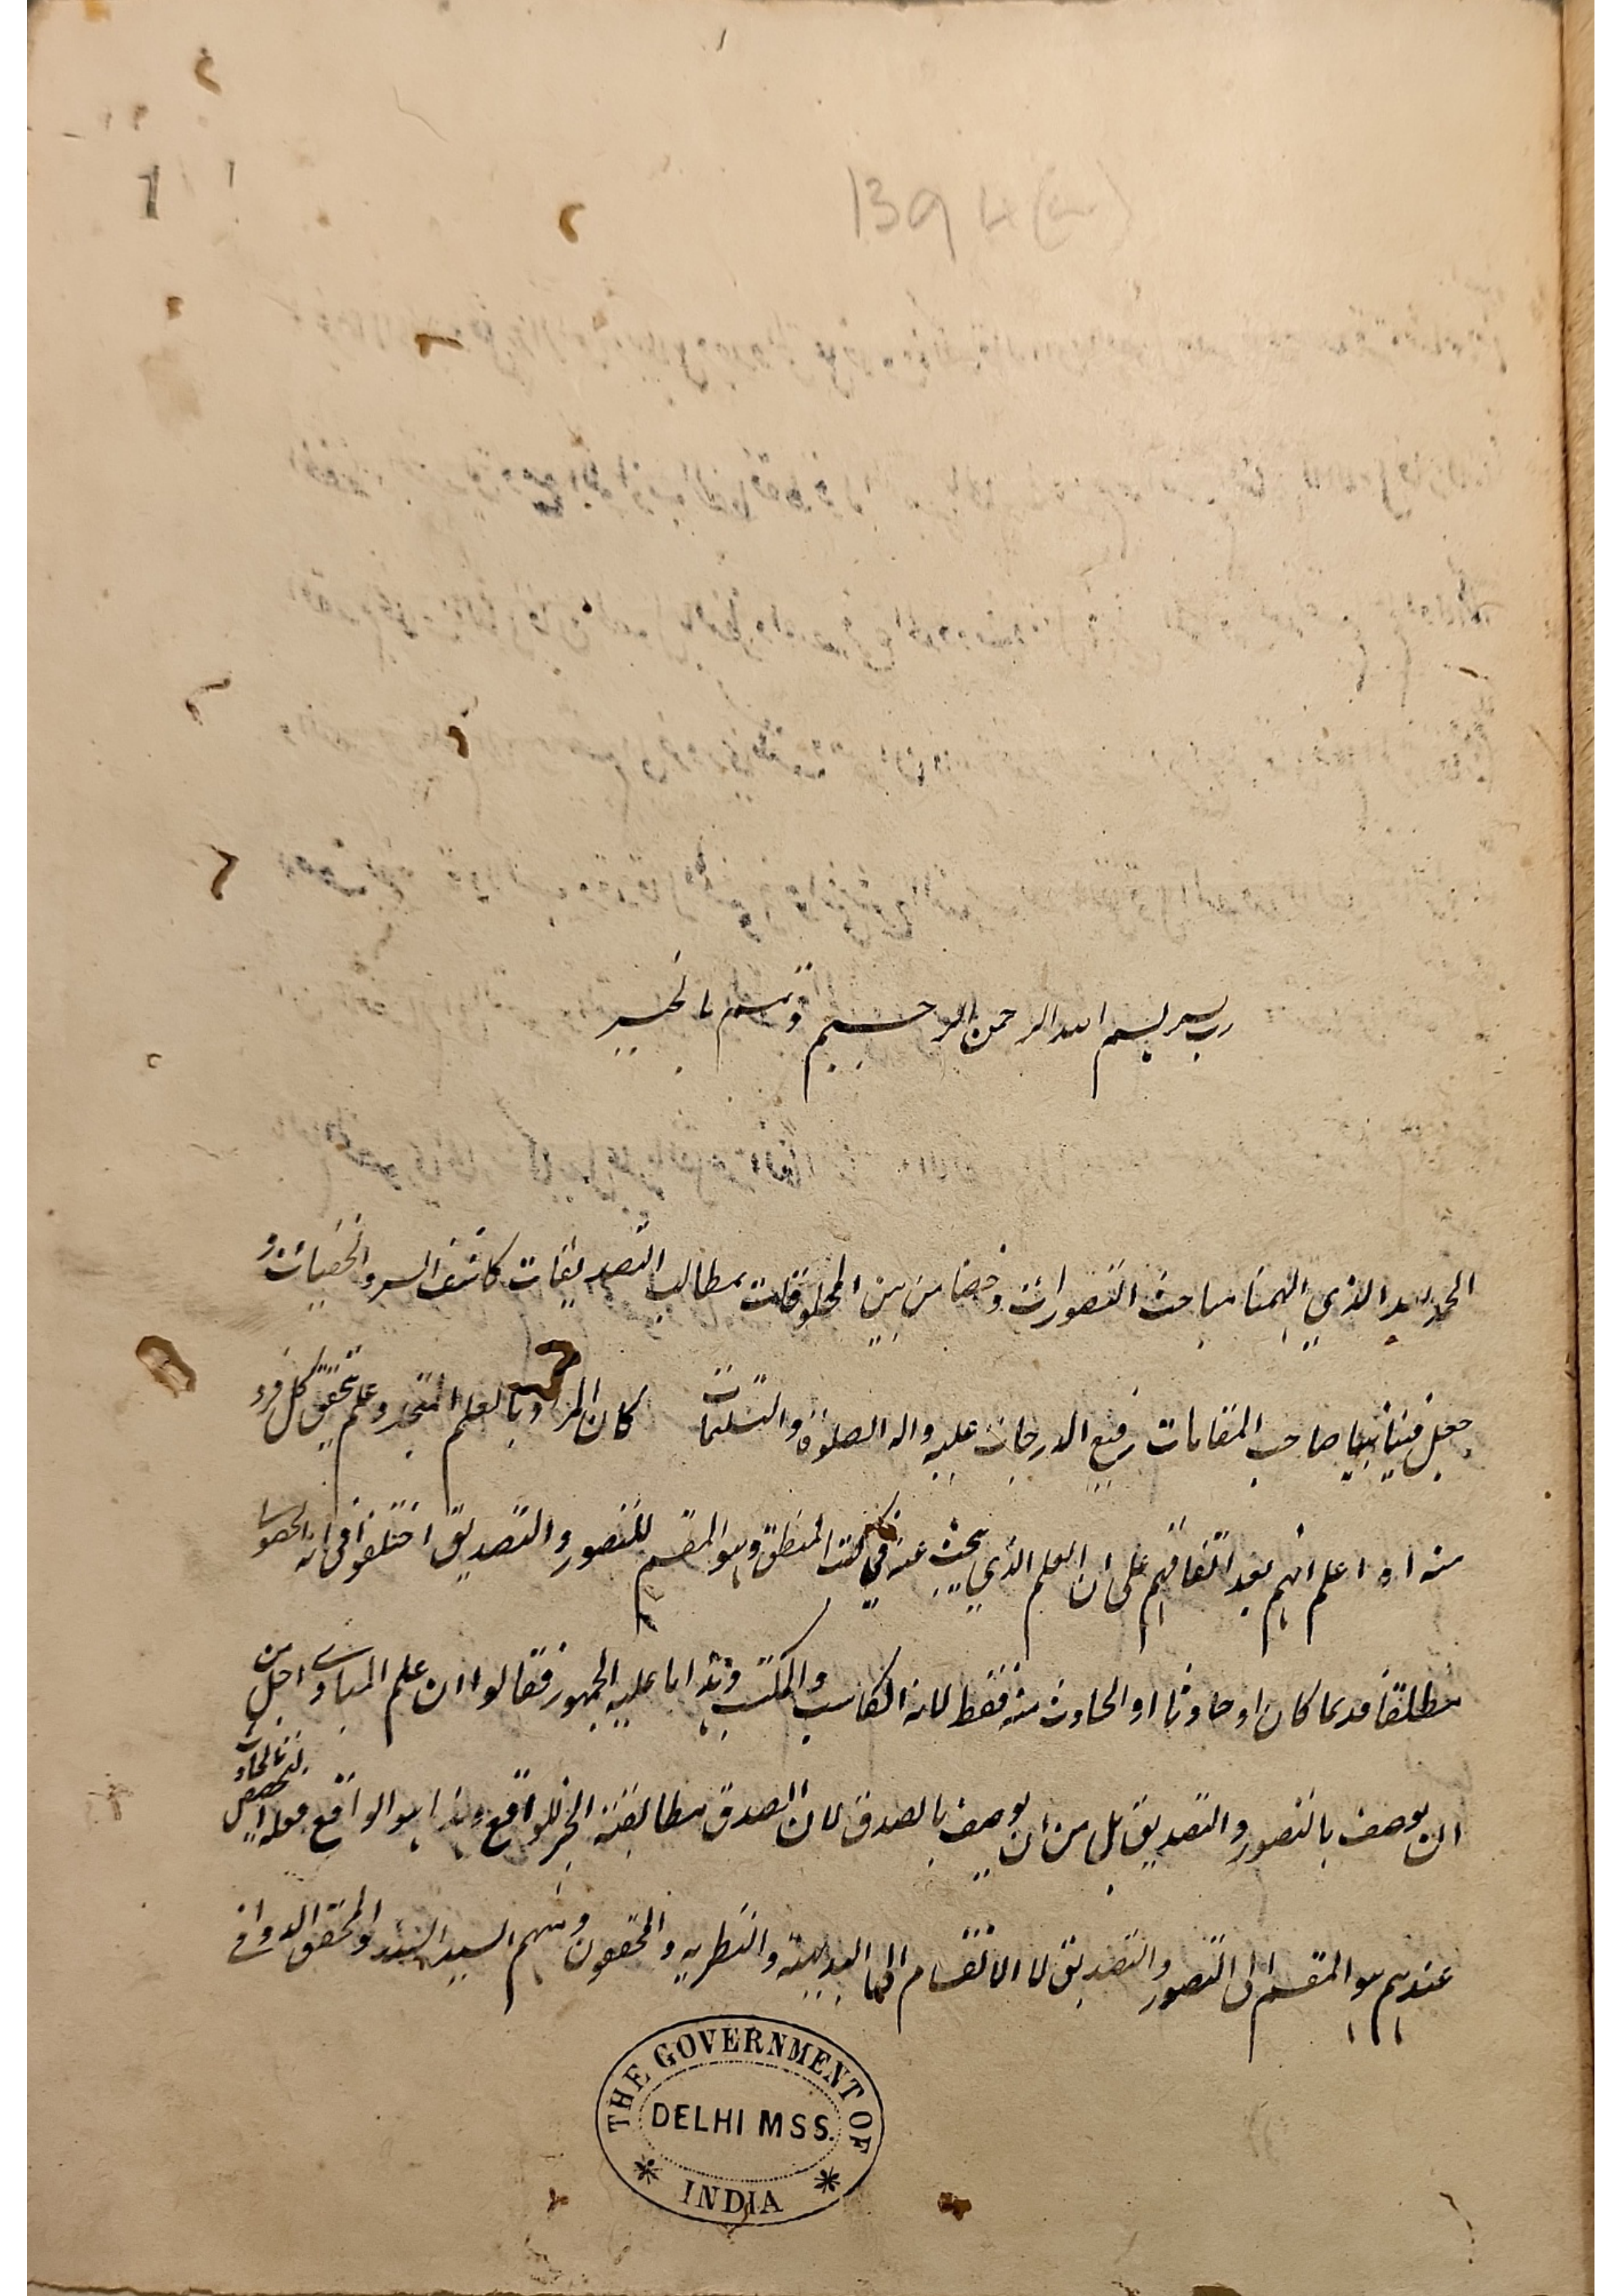 1
1394
رب يسر بسم الله الرحمن الرحيم وتمم بالخير
الحمد لله الذي الهمنا مباحث التصورات وخصنا من بين المخلوقات بمطالب التصديقات كاشف السر والخفيات و
جعل فينا نبيا صاحب المقامات رفيع الدرجات عليه واله الصلوة والتسليمات كان المراد بالعلم المتجدد علم يتحقق كل فرد
منه اه اعلم انهم بعد اتفاقهم على ان العلم الذي يبحث عنه في كتب المنطق وهو المقسم للتصور والتصديق اختلفوا في انه الحصولي
مطلقا قديما كان او حادثا او الحادث منه فقط لانه الكاسب والمكتسب وهذا ما عليه الجمهور فقالوا ان علم المبادي اجل من
ان يوصف بالتصور والتصديق بل من ان يوصف بالصدق لان الصدق مطابقة الخبر للواقع وهذا هو الواقع فعله التخصيص بالحادث
عندهم هو المقسم الى التصور والتصديق لا الانقسام الى البديهية والنظرية والمحققون ومنهم السيد السند والمحقق الدواني
THE GOVERNMENT OF
DELHI MSS.
INDIA